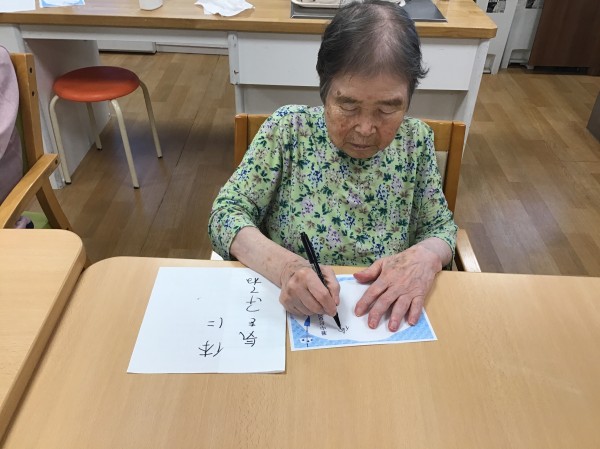 体に
気をつけてね